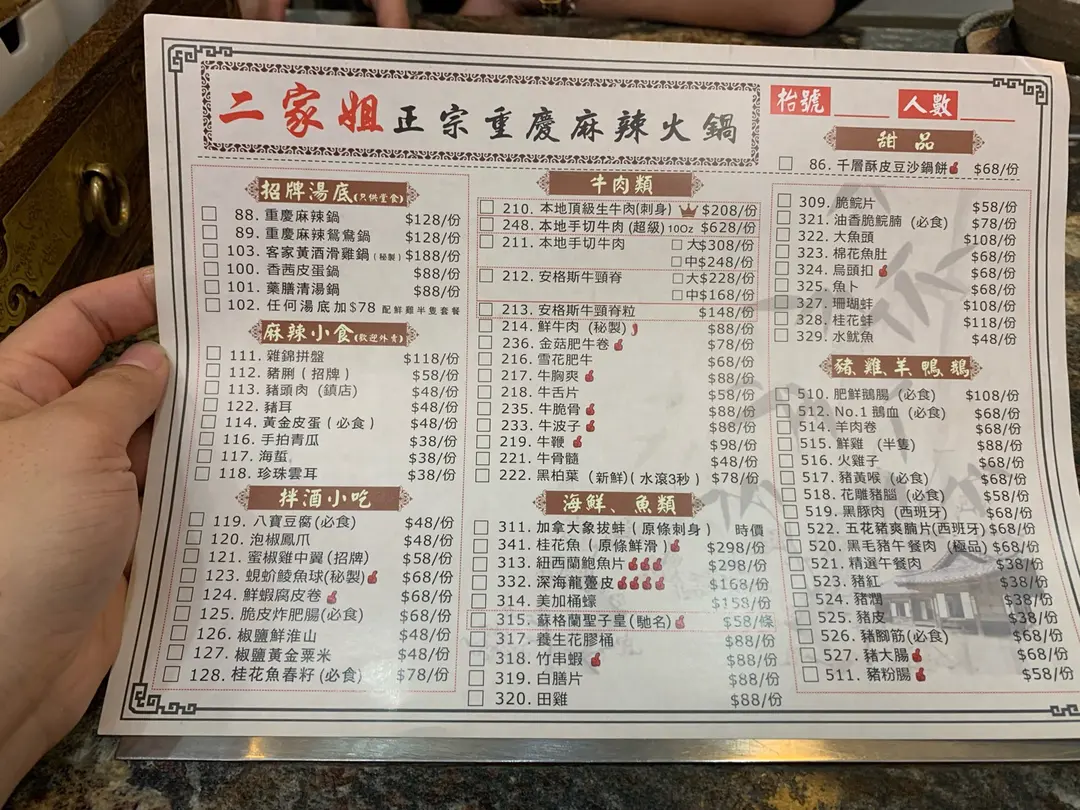 二家姐正宗重慶麻辣火鍋
枱號 人數
招牌湯底(只供堂食)
88. 重慶麻辣鍋 $128/份
89. 重慶麻辣鴛鴦鍋 $128/份
103. 客家黃酒滑雞鍋(秘製) $188/份
100. 香茜皮蛋鍋 $88/份
101. 藥膳清湯鍋 $88/份
102. 任何湯底加$78 配鮮雞半隻套餐
麻辣小食(歡迎外賣)
111. 雜錦拼盤 $118/份
112. 豬脷(招牌) $58/份
113. 豬頭肉(鎮店) $48/份
122. 豬耳 $48/份
114. 黃金皮蛋(必食) $48/份
116. 手拍青瓜 $38/份
117. 海蜇 $38/份
118. 珍珠雲耳 $38/份
拌酒小吃
119. 八寶豆腐(必食) $48/份
120. 泡椒鳳爪 $48/份
121. 蜜椒雞中翼(招牌) $58/份
123. 蜆蚧鯪魚球(秘製) $68/份
124. 鮮蝦腐皮卷 $68/份
125. 脆皮炸肥腸(必食) $68/份
126. 椒鹽鮮淮山 $48/份
127. 椒鹽黃金粟米 $48/份
128. 桂花魚春籽(必食) $78/份
牛肉類
210. 本地頂級生牛肉(刺身) $208/份
248. 本地手切牛肉(超級)10Oz $628/份
211. 本地手切牛肉 大$308/份
中$248/份
212. 安格斯牛頸脊 大$228/份
中$168/份
213. 安格斯牛頸脊粒 $148/份
214. 鮮牛肉(秘製) $88/份
236. 金菇肥牛卷 $78/份
216. 雪花肥牛 $68/份
217. 牛胸爽 $88/份
218. 牛舌片 $58/份
235. 牛脆骨 $88/份
233. 牛波子 $88/份
219. 牛鞭 $98/份
221. 牛骨髓 $48/份
222. 黑柏葉(新鮮)(水滾3秒) $78/份
海鮮、魚類
311. 加拿大象拔蚌(原條刺身) 時價
341. 桂花魚(原條鮮滑) $298/份
313. 紐西蘭鮑魚片 $298/份
332. 深海龍躉皮 $168/份
314. 美加桶蠔 $158/份
315. 蘇格蘭聖子皇(馳名) $58/條
317. 養生花膠桶 $88/份
318. 竹串蝦 $88/份
319. 白膳片 $88/份
320. 田雞 $88/份
甜品
86. 千層酥皮豆沙鍋餅 $68/份
309. 脆鯇片 $58/份
321. 油香脆鯇腩(必食) $78/份
322. 大魚頭 $108/份
323. 棉花魚肚 $68/份
324. 烏頭扣 $68/份
325. 魚卜 $68/份
327. 珊瑚蚌 $108/份
328. 桂花蚌 $118/份
329. 水魷魚 $48/份
豬、雞、羊、鴨、鵝
510. 肥鮮鵝腸(必食) $108/份
512. No.1 鵝血(必食) $68/份
514. 羊肉卷 $68/份
515. 鮮雞(半隻) $88/份
516. 火雞子 $68/份
517. 豬黃喉(必食) $68/份
518. 花雕豬腦(必食) $58/份
519. 黑豚肉(西班牙) $68/份
522. 五花豬爽腩片(西班牙) $68/份
520. 黑毛豬午餐肉(極品) $68/份
521. 精選午餐肉 $38/份
523. 豬紅 $38/份
524. 豬潤 $38/份
525. 豬皮 $38/份
526. 豬腳筋(必食) $68/份
527. 豬大腸 $68/份
511. 豬粉腸 $58/份